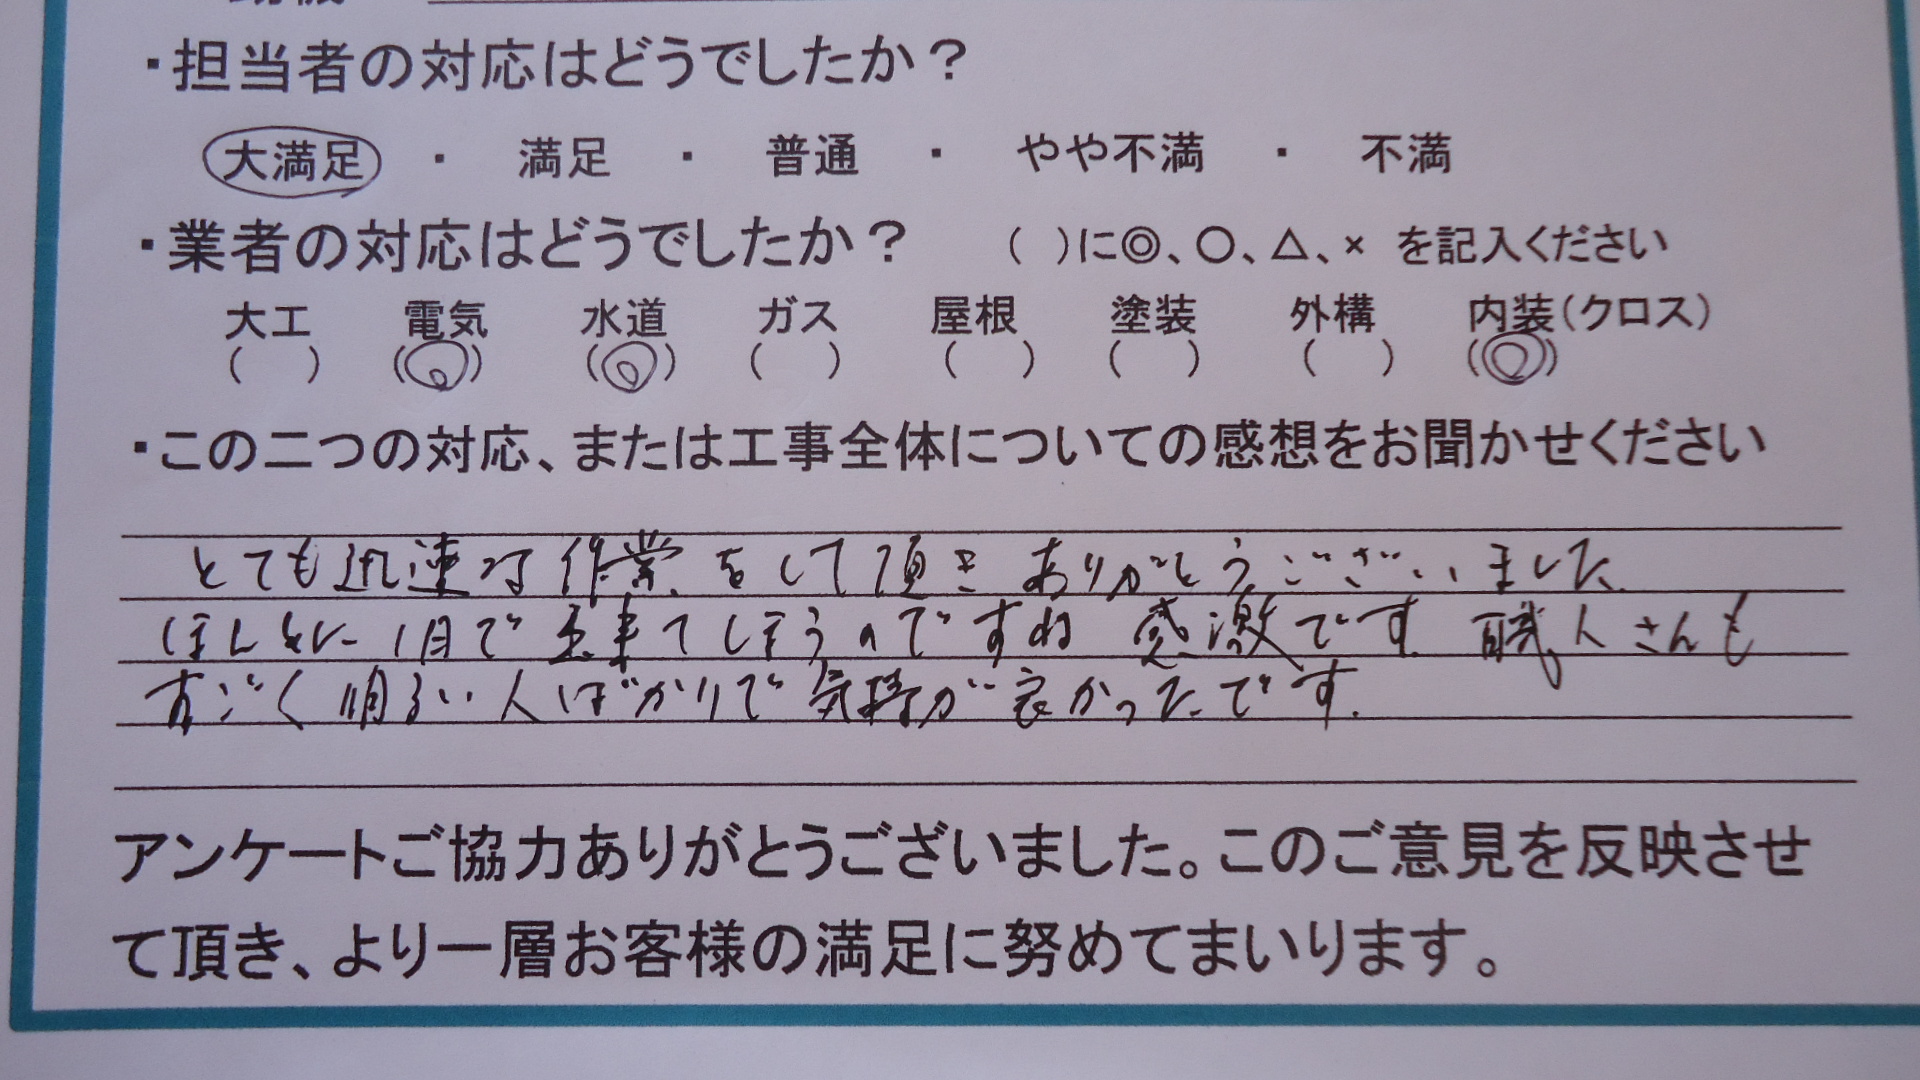 ・担当者の対応はどうでしたか？
大満足 ・ 満足 ・ 普通 ・ やや不満 ・ 不満
・業者の対応はどうでしたか？ （ ）に◎、〇、△、× を記入ください
大工 電気 水道 ガス 屋根 塗装 外構 内装（クロス）
（ ） （◎） （◎） （ ） （ ） （ ） （ ） （◎）
・この二つの対応、または工事全体についての感想をお聞かせください
とても迅速な作業をして頂きありがとうございました。
ほんとに1日で出来てしまうのですね 感激です。職人さんも
すごく明るい人ばかりで気持が良かったです。
アンケートご協力ありがとうございました。このご意見を反映させ
て頂き、より一層お客様の満足に努めてまいります。